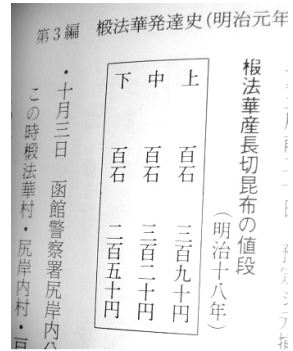 第3編 椴法華発達史(明治元年
椴法華産長切昆布の値段
(明治十八年)
上 百石 三百九十円
中 百石 三百二十円
下 百石 二百五十円
・十月三日 函館警察署尻岸内
この時椴法華村・尻岸内村・